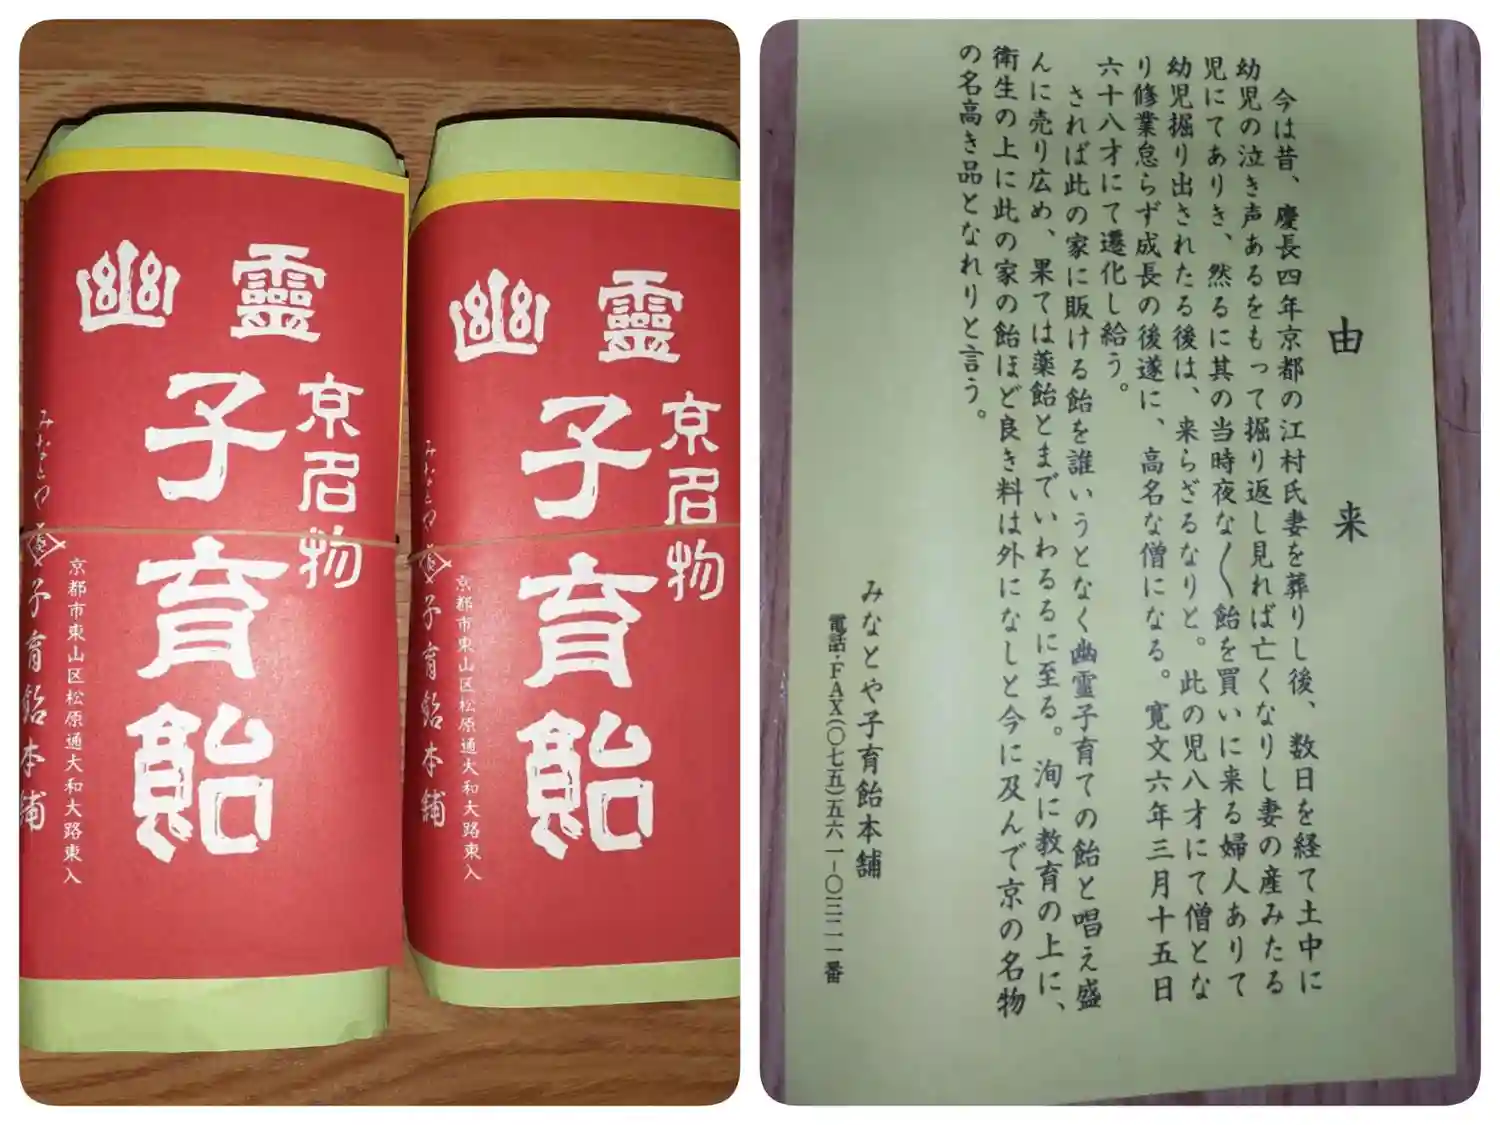 幽霊
京名物
子育飴
みなとや
子育飴本舗
京都市東山区松原通大和大路東入
幽霊
京名物
子育飴
みなとや
子育飴本舗
京都市東山区松原通大和大路東入
由来
今は昔、慶長四年京都の江村氏妻を葬りし後、数日を経て土中に
幼児の泣き声あるをもって掘り返し見れば亡くなりし妻の産みたる
児にてありき、然るに其の当時夜な〱飴を買いに来る婦人ありて
幼児掘り出されたる後は、来らざるなりと。此の児八才にて僧とな
り修業怠らず成長の後遂に、高名な僧になる。寛文六年三月十五日
六十八才にて遷化し給う。
されば此の家に販ける飴を誰いうとなく幽霊子育ての飴と唱え盛
んに売り広め、果ては薬飴とまでいわるるに至る。洵に教育の上に、
衛生の上に此の家の飴ほど良き料は外になしと今に及んで京の名物
の名高き品となれりと言う。
みなとや子育飴本舗
電話・FAX(〇七五)五六一-〇三二一番